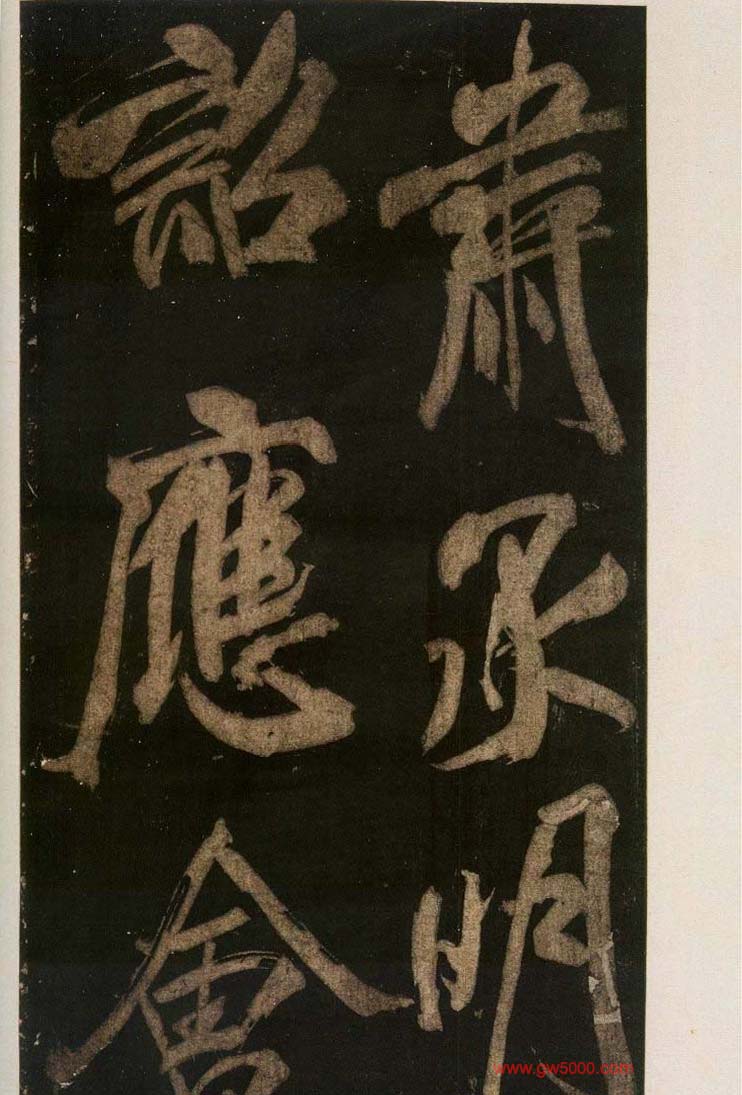 肅承明
詔應會
www.gw5000.com